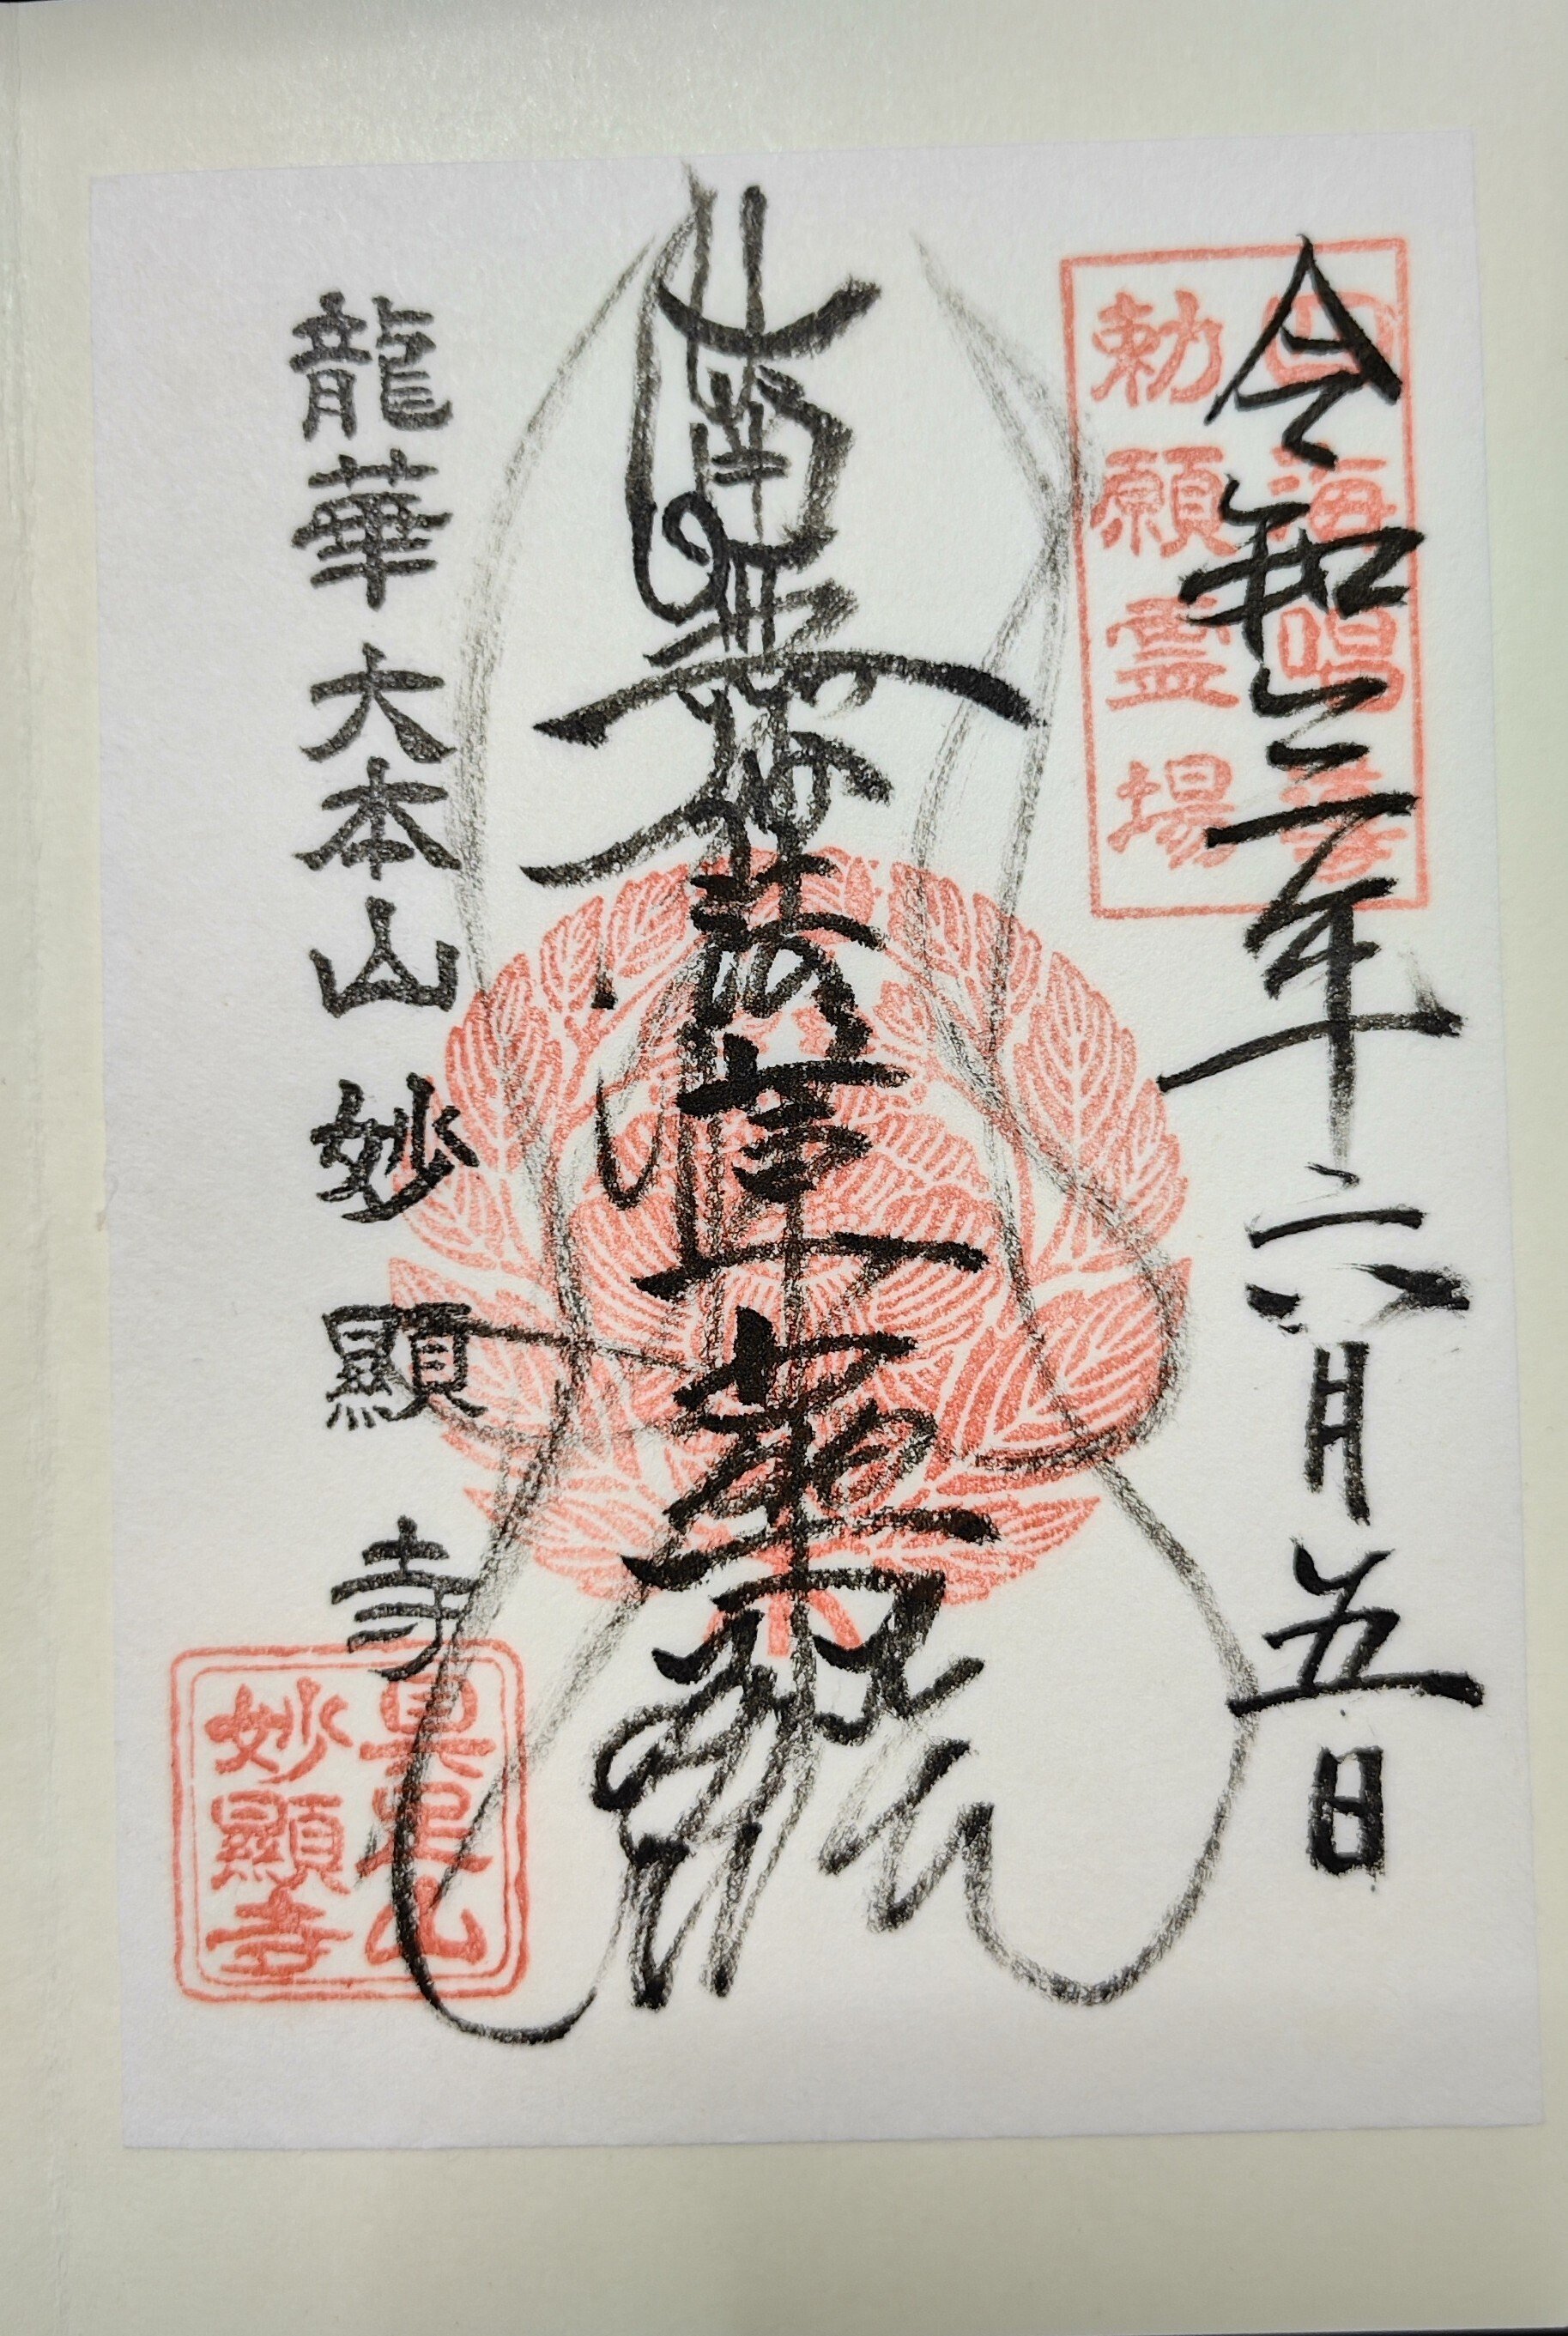 令和三年六月五日
四海唱導
勅願霊場
南無妙法蓮華経
龍華 大本山 妙顯寺
具足山
妙顯寺